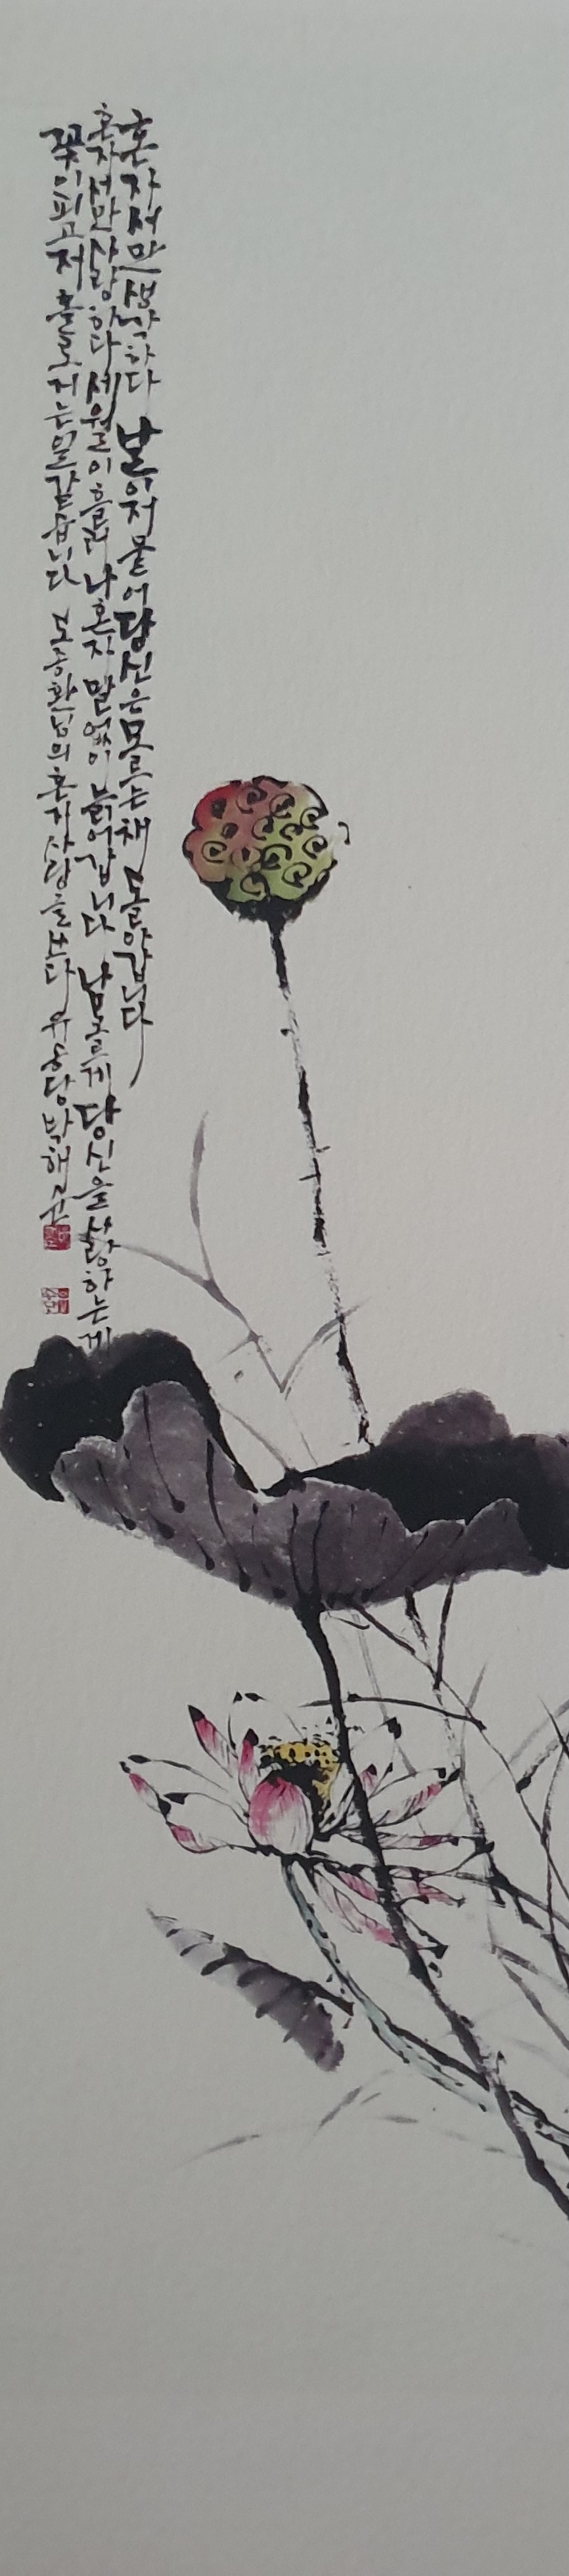 혼자서만 생각하다 날이 저물어 당신은 모르는 채 돌아갑니다
혼자서만 사랑하다 세월이 흘러 나 혼자 말없이 늙어갑니다 남 모르게 당신을 사랑하는 게
꽃이 피고 저 홀로 지는 일 같습니다 도종환님의 혼자 사랑을 쓰다 박해